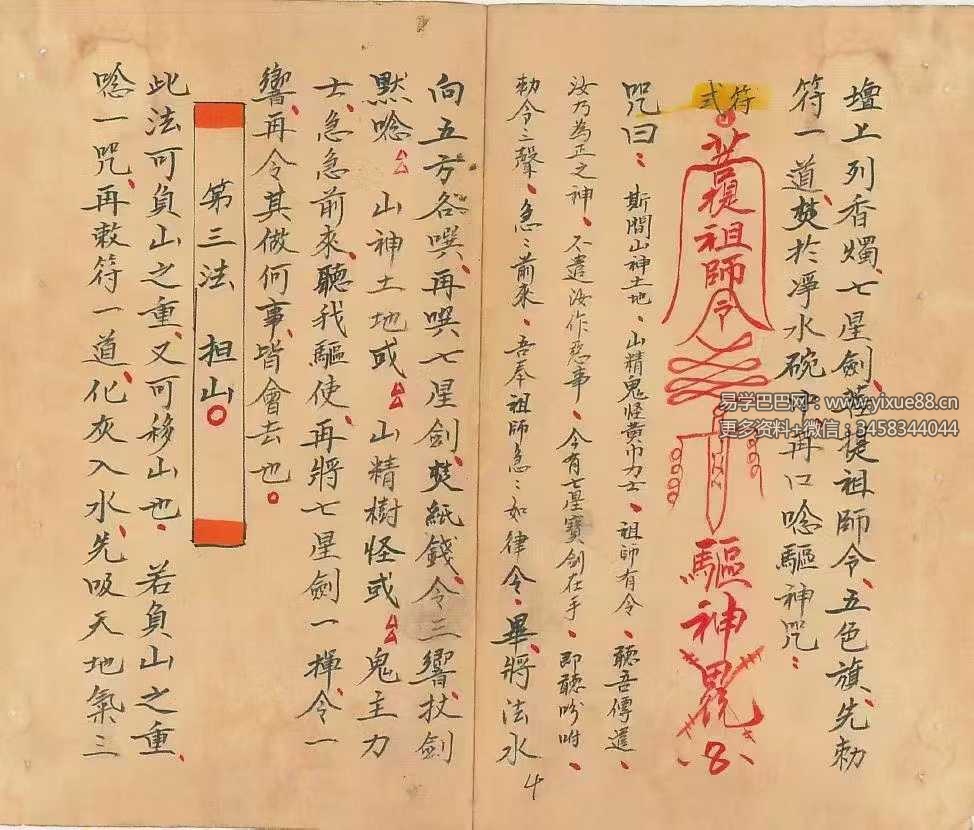 壇上列香燭、七星劍、菩提祖師令、五色旗、先勅
符一道、焚於淨水碗中、再口唸驅神咒：
符式
菩提祖師令
驅神
咒曰：斯間山神土地、山精鬼怪黄巾力士、祖師有令、聽吾傳遣、
汝乃為正之神、不遣汝作惡事、今有七星寶劍在手、即聽吩咐、
勅令之聲、急：前來、吾奉祖師急：如律令、畢、將法水
向五方各噀、再噀七星劍、焚紙錢、令三響、扙劍
默唸 山神土地或 山精樹怪或 鬼主力
士、急急前來、聽我驅使、再將七星劍一揮、令一
響、再令其做何事、皆會去也。
第三法 担山。
此法可負山之重、又可移山也、若負山之重、
唸一咒、再敕符一道、化灰入水、先吸天地氣三
4
易学巴巴网：www.yixue88.cn
更多资料+微信：3458344044